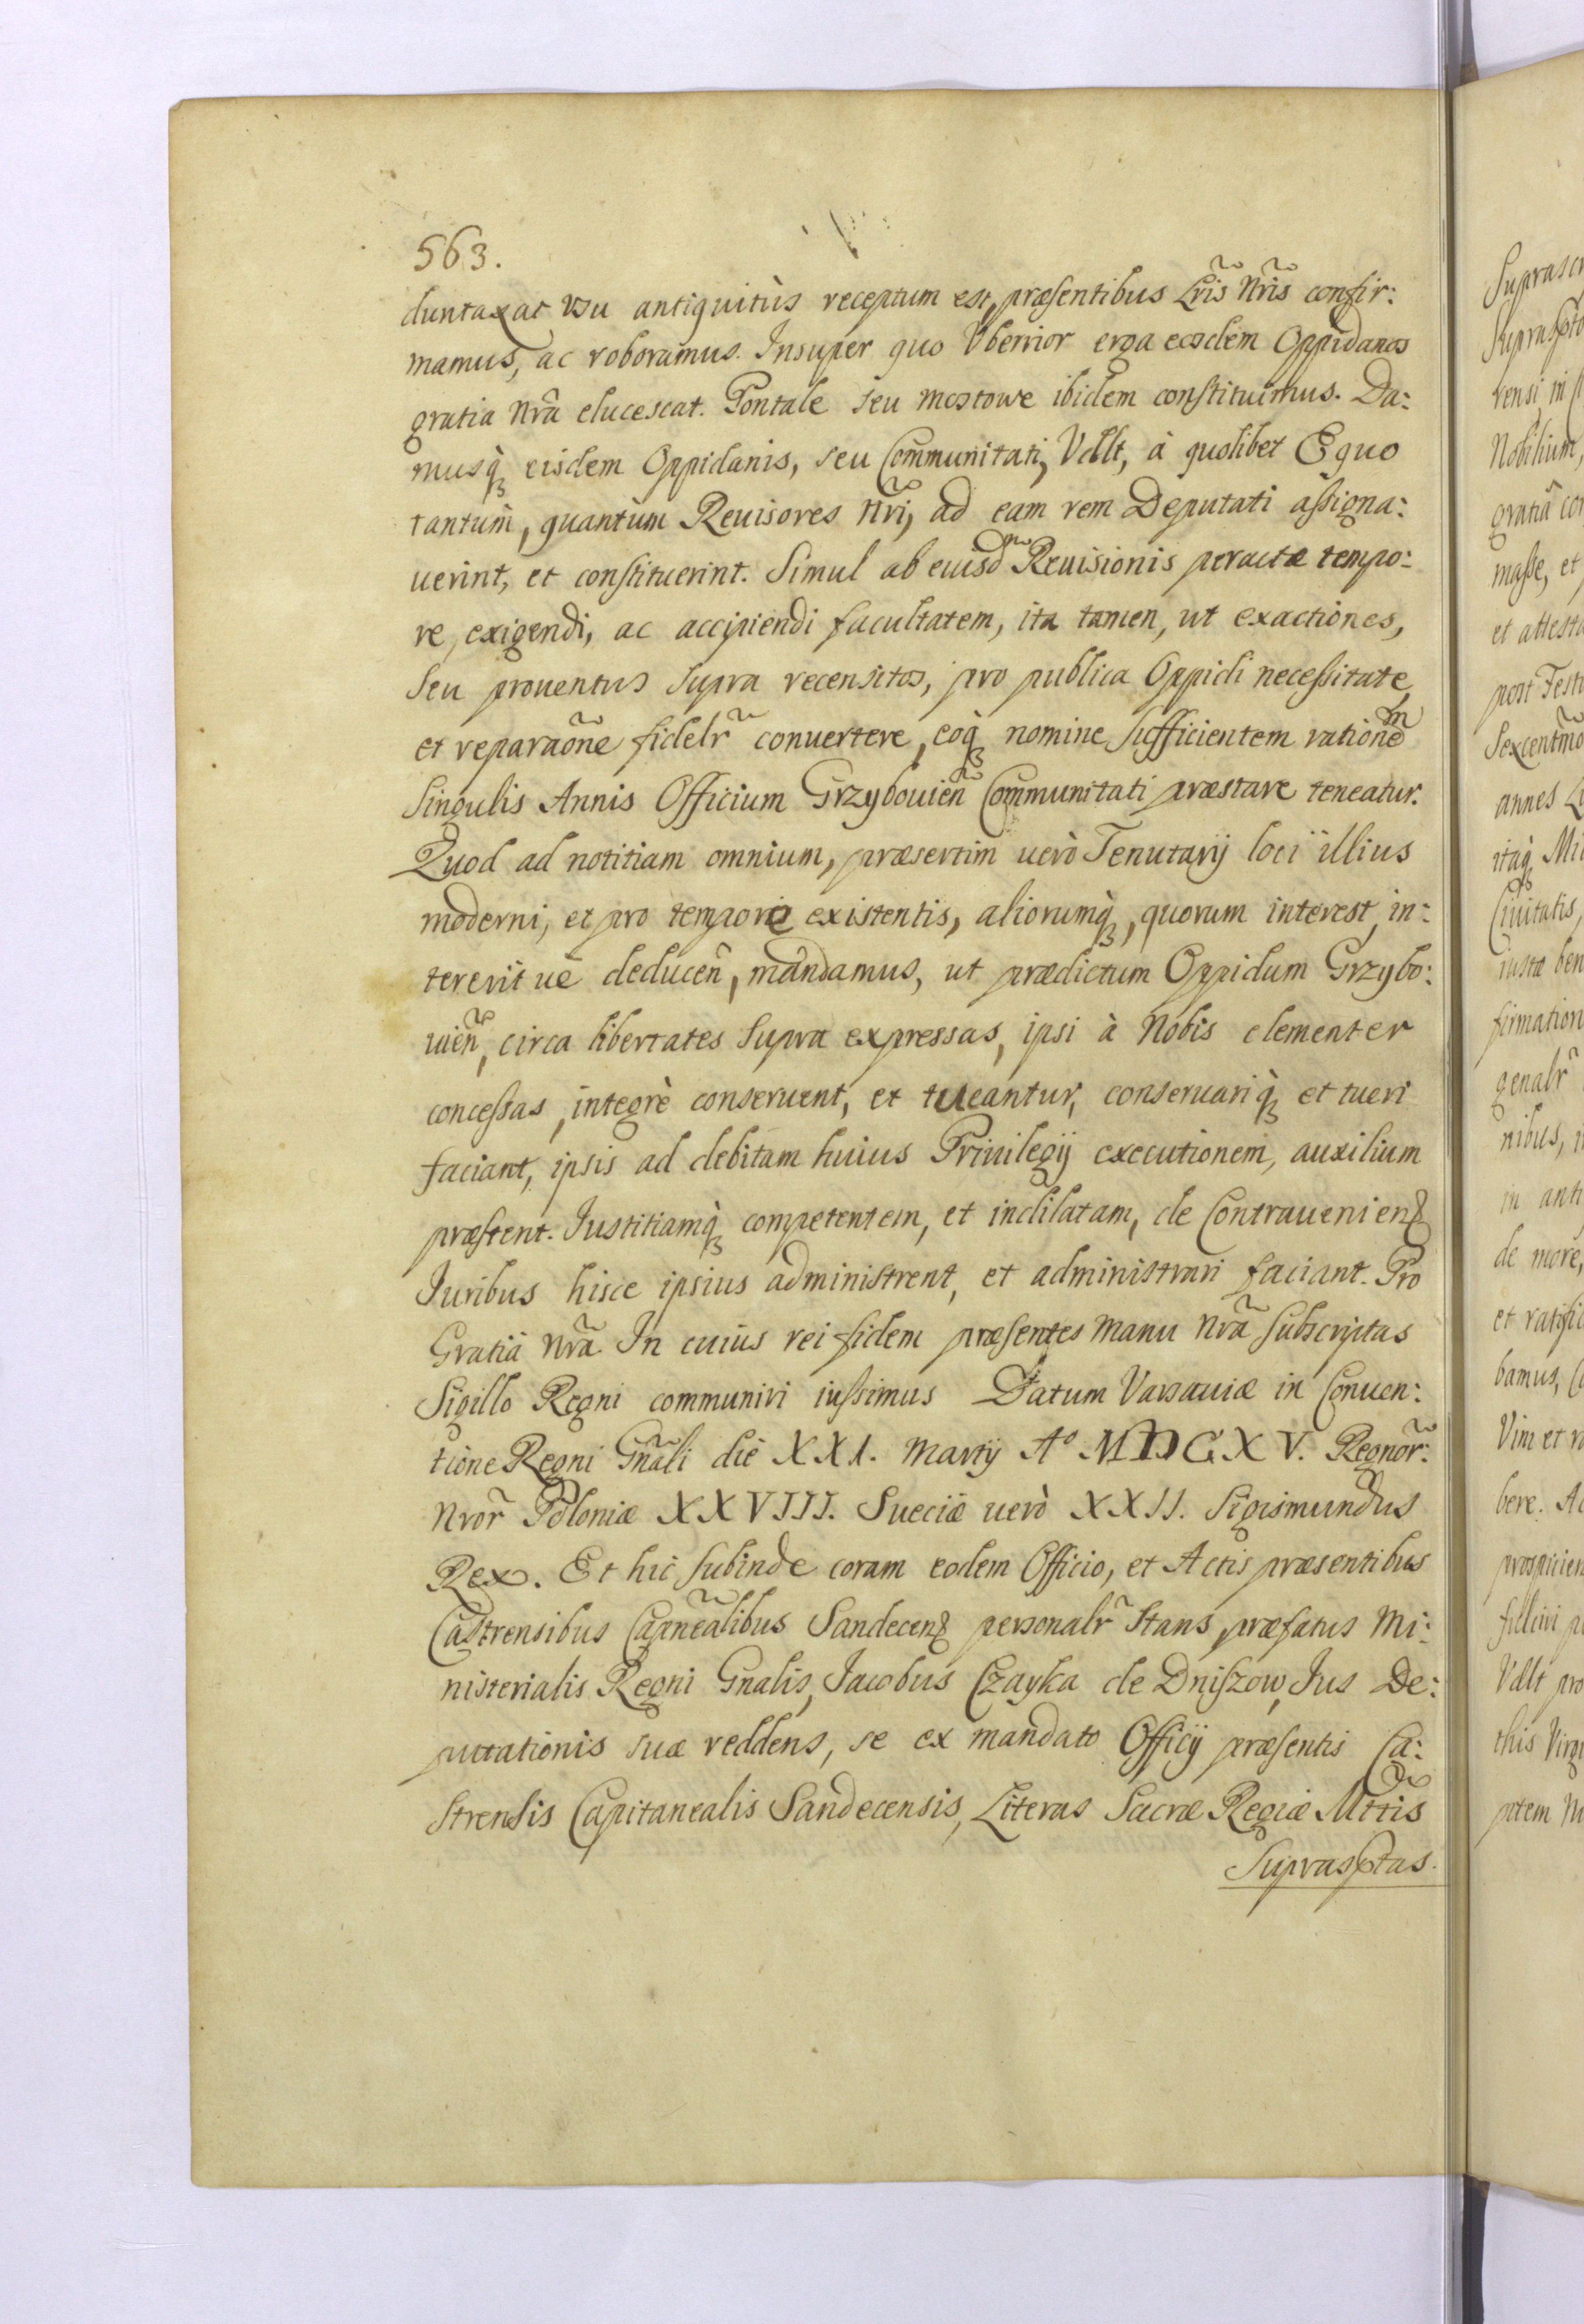 563.
duntaxat usu antiquitùs receptum est, præsentibus Lr̃is Nr̃is confir:
mamus, ac roboramus. Insuper quo Vberrior erga eosdem Oppidanos
gratia Nr̃a elucescat. Pontale seu mostowe ibidem constituimus. Da:
musq̀ȝ eisdem Oppidanis, seu Com̃unitati, Vdlt, à quolibet Equo
tantum, quantum Reuisores Nr̃i, ad eam rem Deputati assigna:
uerint, et constituerint. Simul ab eiusd̃m Reuisionis peractæ tempo:
re, exigendi, ac accipiendi facultatem, ita tamen, ut exactiones,
seu prouentus supra recensitos, pro publica Oppidi necessitate,
et reparaõne fidelr̃ conuertere, eoq̀ȝ nomine sufficientem rationem
singulis Annis Officium Grzybouien̄ Com̃unitati præstare teneatur.
Quod ad notitiam omnium, præsertim uerò Tenutarij loci illius
moderni, et pro tempore existentis, aliorumq̀ȝ, quorum interest, in:
tererit uè deducen̄, mandamus, ut prædictum Oppidum Grzybo:
uien̄, circa libertates supra expressas, ipsi à Nobis clementer
concessas, integrè conseruent, et tueantur, conseruariq̀ȝ et tueri
faciant, ipsis ad debitam huius Priuilegij executionem, auxilium
præstent. Iustitiamq̀ȝ competentem, et indilatam, de Contrauenienȝ
Iuribus hisce ipsius administrent, et administrari faciant. Pro
Gratiâ Nr̃a. In cuius rei fidem præsentes manu Nr̃a subscriptas
Sigillo Regni communiri iussimus Datum Varsauiæ in Conuen:
tione Regni Gn̄ali die XXI. Martij Aº MDCXV. Regnor̃:
Nror̃ Poloniæ XXVIII. Sueciæ uerò XXII. Sigismundus
Rex. Et hic subinde coram eodem Officio, et Actis præsentibus
Castrensibus Capn̄ealibus Sandecenȝ personalr̃ stans, præfatus Mi:
nisterialis Regni Gnalis, Jacobus Czayka de Dniszow, Jus De:
putationis suæ reddens, se ex mandato Officij præsentis Ca:
strensis Capitanealis Sandecensis, Literas Sacræ Regiæ Mttis
Suprasptas.